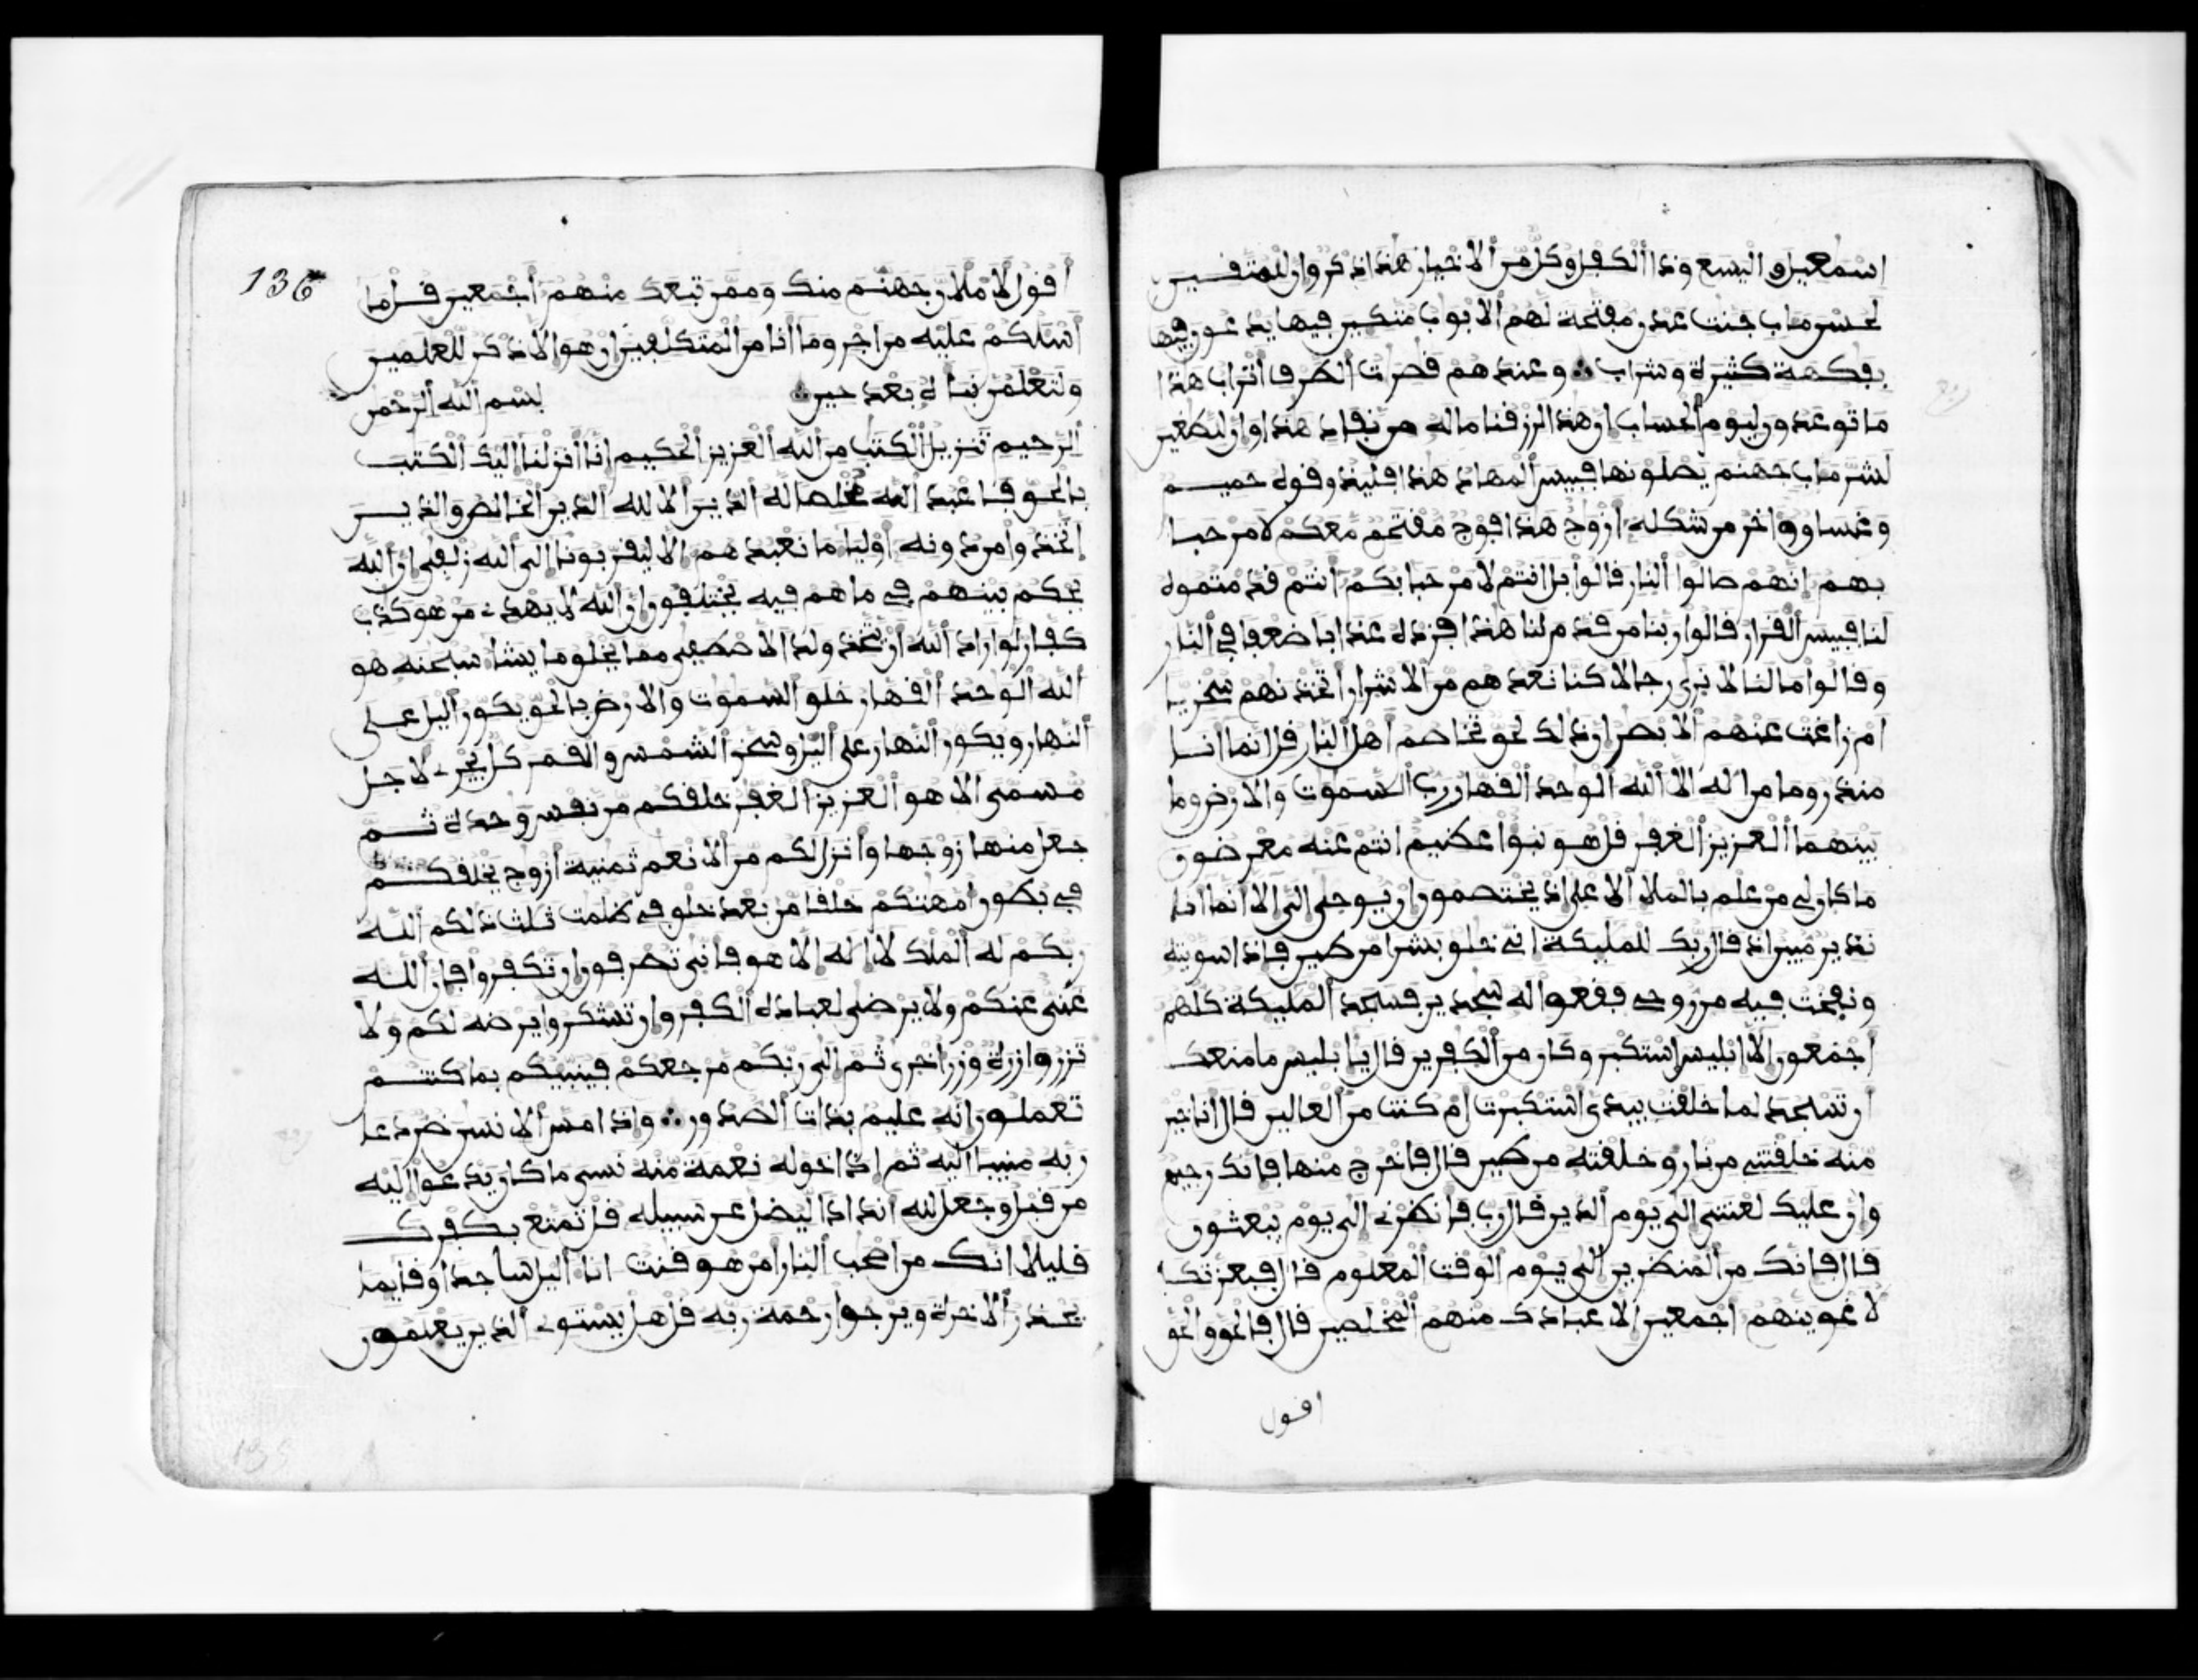 اسمعيل واليسع وذا الكفل وكل من الاخيار هذا ذكر وان للمتقين
لحسن ماب جنت عدن مفتحة لهم الابوب متكين فيها يدعون فيها
بفكهة كثيرة وشراب وعندهم قصرت الطرف اتراب هذا
ما توعدون ليوم الحساب ان هذا لرزقنا ما له من نفاد هذا وان للطغين
لشر ماب جهنم يصلونها فبيس المهاد هذا فليذوقوه حميم
وغساق واخر من شكله ازوج هذا فوج مقتحم معكم لا مرحبا
بهم انهم صالوا النار قالوا بل انتم لا مرحبا بكم انتم قدمتموه
لنا فبيس القرار قالوا ربنا من قدم لنا هذا فزده عذابا ضعفا في النار
وقالوا ما لنا لا نرى رجالا كنا نعدهم من الاشرار اتخذنهم سخريا
ام زاغت عنهم الابصر ان ذلك لحق تخاصم اهل النار قل انما انا
منذر وما من اله الا الله الوحد القهار رب السموت والارض وما
بينهما العزيز الغفر قل هو نبوا عظيم انتم عنه معرضون
ما كان لي من علم بالملا الاعلى اذ يختصمون ان يوحى الي الا انما انا
نذير مبين اذ قال ربك للمليكة اني خلق بشرا من طين فاذا سويته
ونفخت فيه من روحي فقعوا له سجدين فسجد المليكة كلهم
اجمعون الا ابليس استكبر وكان من الكفرين قال يابليس ما منعك
ان تسجد لما خلقت بيدي استكبرت ام كنت من العالين قال انا خير
منه خلقتني من نار وخلقته من طين قال فاخرج منها فانك رجيم
وان عليك لعنتي الى يوم الدين قال رب فانظرني الى يوم يبعثون
قال فانك من المنظرين الى يوم الوقت المعلوم قال فبعزتك
لاغوينهم اجمعين الا عبادك منهم المخلصين قال فالحق والحق
اقول
136
اقول لاملان جهنم منك وممن تبعك منهم اجمعين قل ما
اسلكم عليه من اجر وما انا من المتكلفين ان هو الا ذكر للعلمين
ولتعلمن نباه بعد حين بسم الله الرحمن
الرحيم تنزيل الكتب من الله العزيز الحكيم انا انزلنا اليك الكتب
بالحق فاعبد الله مخلصا له الدين الا لله الدين الخالص والذين
اتخذوا من دونه اوليا ما نعبدهم الا ليقربونا الى الله زلفى ان الله
يحكم بينهم في ما هم فيه يختلفون ان الله لا يهدي من هو كذب
كفار لو اراد الله ان يتخذ ولدا لاصطفى مما يخلق ما يشا سبحنه هو
الله الوحد القهار خلق السموت والارض بالحق يكور اليل على
النهار ويكور النهار على اليل وسخر الشمس والقمر كل يجري لاجل
مسمى الا هو العزيز الغفر خلقكم من نفس وحدة ثم
جعل منها زوجها وانزل لكم من الانعم ثمنية ازوج يخلقكم
في بطون امهتكم خلقا من بعد خلق في ظلمت ثلث ذلكم الله
ربكم له الملك لا اله الا هو فانى تصرفون ان تكفروا فان الله
غني عنكم ولا يرضى لعباده الكفر وان تشكروا يرضه لكم ولا
تزر وازرة وزر اخرى ثم الى ربكم مرجعكم فينبيكم بما كنتم
تعملون انه عليم بذات الصدور واذا مس الانسن ضر دعا
ربه منيبا اليه ثم اذا خوله نعمة منه نسي ما كان يدعوا اليه
من قبل وجعل لله اندادا ليضل عن سبيله قل تمتع بكفرك
قليلا انك من اصحب النار امن هو قنت انا اليل ساجدا وقايما
يحذر الاخرة ويرجوا رحمة ربه قل هل يستوي الذين يعلمون